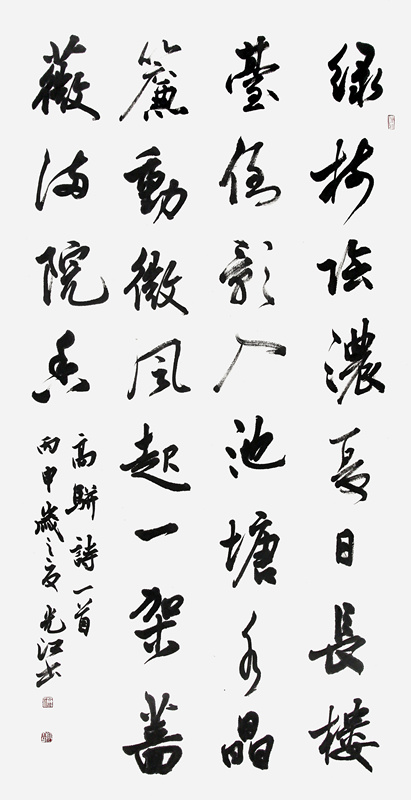 绿树阴濃夏日長楼
臺倒影入池塘水晶
簾動微風起一架薔
薇满院香
高駢詩一首
丙申歲之夏光江书